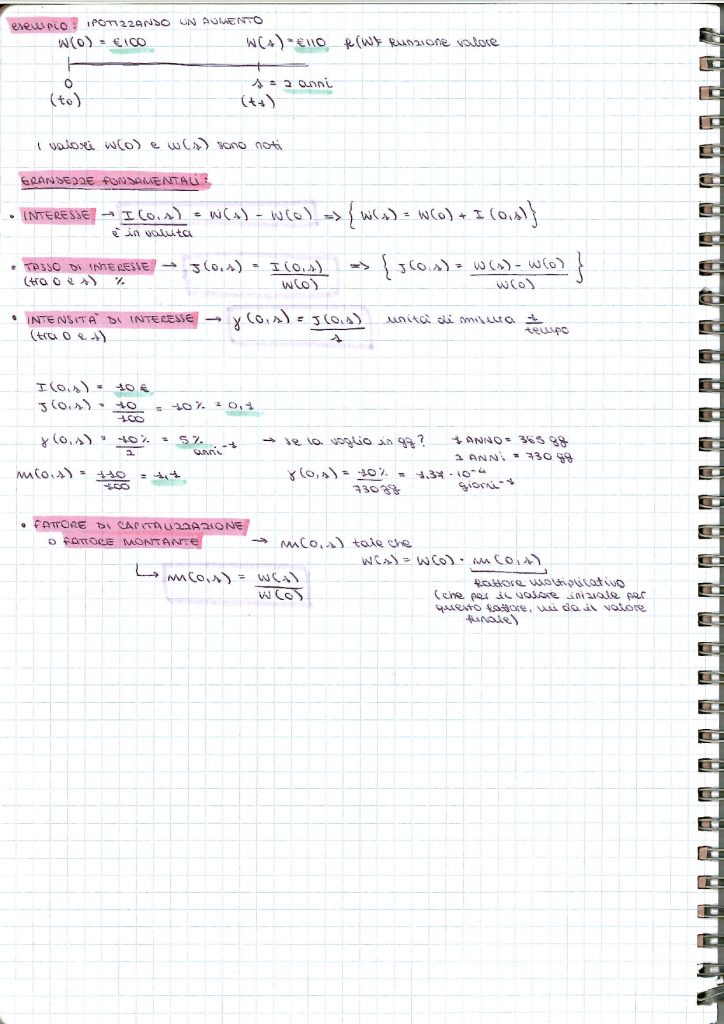 esempio: IPOTIZZANDO UN AUMENTO
W(0) = €100 W(s) = €110 f(W)= funzione valore
0 s = 2 anni
(t0) (ts)
i valori W(0) e W(s) sono noti
GRANDEZZE FONDAMENTALI:
• INTERESSE → I(0,s) = W(s) - W(0) => { W(s) = W(0) + I(0,s) }
è in valuta
• TASSO DI INTERESSE → J(0,s) = I(0,s) / W(0) => { J(0,s) = W(s) - W(0) / W(0) }
(tra 0 e s) %
• INTENSITÀ DI INTERESSE → γ(0,s) = J(0,s) / s unità di misura 1 / tempo
(tra 0 e s)
I(0,s) = 10 €
J(0,s) = 10 / 100 = 10% = 0,1
γ(0,s) = 10% / 2 = 5% anni⁻¹ → se la voglio in gg? 1 ANNO = 365 gg
2 ANNI = 730 gg
m(0,s) = 110 / 100 = 1,1 γ(0,s) = 10% / 730 gg = 1,37 · 10⁻⁴ giorni⁻¹
• FATTORE DI CAPITALIZZAZIONE
O FATTORE MONTANTE → m(0,s) tale che
W(s) = W(0) · m(0,s)
↳ m(0,s) = W(s) / W(0)
fattore moltiplicativo
(che per il valore iniziale per
questo fattore, mi da il valore
finale)